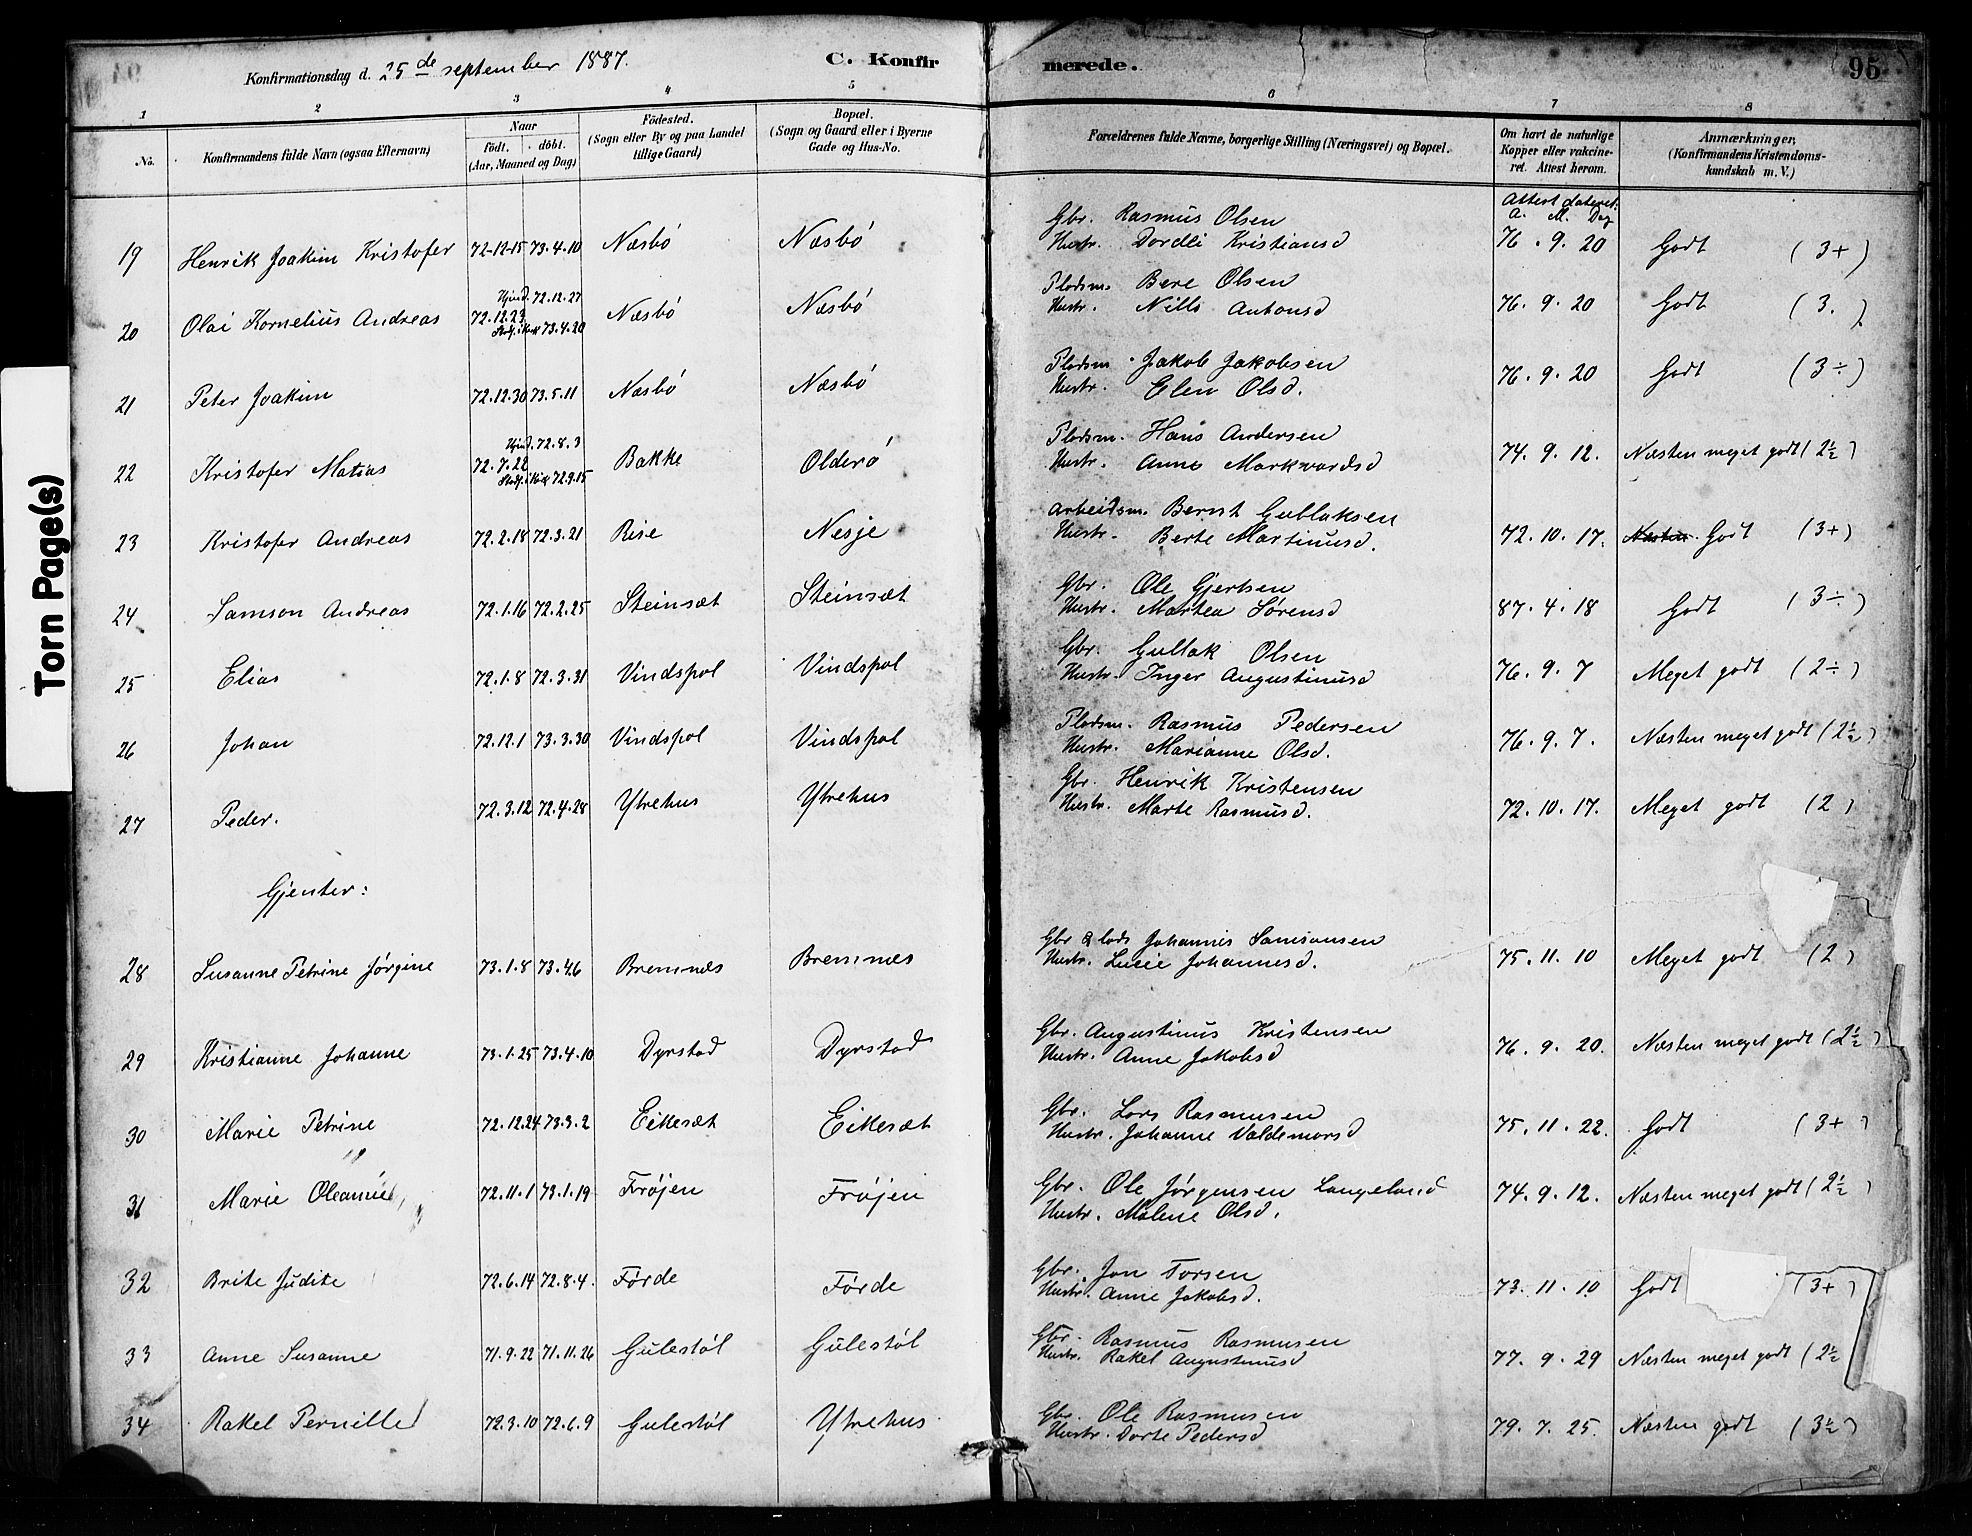 Konfirmationsdag d. 25de september 1887.
C. Konfirmerede.
95
1 2 3 4 5 6 7 8
No.
Konfirmandens fulde Navn (ogsaa Efternavn)
Naar
født. døbt.
(Aar, Maaned og Dag)
Födested.
(Sogn eller By og paa Landet
tillige Gaard)
Bopæl.
(Sogn og Gaard eller i Byerne
Gade og Hus-No.
Forældrenes fulde Navne, borgerlige Stilling (Næringsvei) og Bopæl.
Om havt de naturlige
Kopper eller vakcine-
ret. Attest herom.
Anmærkninger,
(Konfirmandens Kristendoms-
kundskab m. V.)
Attest dateret:
A. M. Dag
Gbr. Rasmus Olsen
19 Henrik Joakim Kristofer 72-12-15 73.4.10 Næsbö Næsbö Hustr. Dordli Kristiansd 76.9.20 Godt (3+)
Hjmd. 72.12.27
Pladsm. Bere Olsen
20 Olai Kornelius Andreas 72.12.23 Næsbö Næsbö Hustr. Nille Antonsd 76.9.20 Godt (3.)
Stadf. i Kirk 73.4.20
Pladsm. Jakob Jakobsen
21 Peter Joakim 72.12.30 73.5.11 Næsbö Næsbö Hustr. Elen Olsd. 76.9.20 Godt (3÷)
Hjmd. 72.8.3
Pladsm. Hans Andersen
22 Kristofer Matias 72.7.22 Bakke Olderö Hustr. Anne Markvardsd 74.9.12. Næsten meget godt (2½)
Stadf. i Kirk 72.9.15
Arbeidsm. Bernt Gullaksen
23 Kristofer Andreas 72.2.18 72.3.21 Rise Nesje Hustr. Berte Martinusd. 72.10.17. Næsten Godt (3+)
Gbr. Ole Gjertsen
24 Samson Andreas 72.1.16 72.2.25 Steinsæt Steinsæt Hustr. Martea Sørensd 87.4.18 Godt (3÷)
Gbr. Gullak Olsen
25 Elias 72.1.8 72.3.31 Vindspol Vindspol Hustr. Inger Augustinusd 76.9.7 Meget godt (2÷)
Pladsm. Rasmus Pedersen
26 Johan 72.12.1 73.3.30 Vindspol Vindspol Hustr. Marianne Olsd. 76.9.7. Næsten meget godt (2½)
Gbr. Henrik Kristensen
27 Peder. 72.3.12 72.4.28 Ytrehus Ytrehus Hustr. Marte Rasmusd. 72.10.17. Meget godt (2)
Gjenter:
Gbr & lods Johannes Samsonsen
28 Susanne Petrine Jørgine 73.1.8 73.4.6 Bremnæs Bremnæs Hustr. Lucie Johannesd. 75.11.10 Meget godt (2)
Gbr. Augustinus Kristensen
29 Kristianne Johanne 73.1.25 73.4.10 Dyrstad Dyrstad Hustr. Anne Jakobsd 76.9.20. Næsten meget godt (2½)
Gbr. Lars Rasmusen
30 Marie Petrine 72.12.24 73.3.2 Eikesæt Eikesæt Hustr. Johanne Valdemarsd 75.11.22. Godt (3+)
Gbr. Ole Jørgensen Langeland
31 Marie Oleanne 72.11.1 73.1.19 Frøjen Frøjen Hustr. Malene Olsd. 74.9.12. Næsten meget godt (2½)
Gbr. Jon Torsen
32 Brite Judite 72.6.14 72.8.4. Førde Førde Hustr. Anne Jakobsd. 73.11.10 Godt (3+)
Gbr. Rasmus Rasmusen
33 Anne Susanne 71.9.22 71.11.26 Gulestøl Gulestøl Hustr. Rakel Augustinusd 77.9.29 Næsten meget godt (2½
Gbr. Ole Rasmusen
34 Rakel Pernille 72.3.10 72.6.9 Gulestøl Ytrehus Hustr. Dorte Pedersd 79.7.25. Næsten godt (3½)
Torn Page(s)